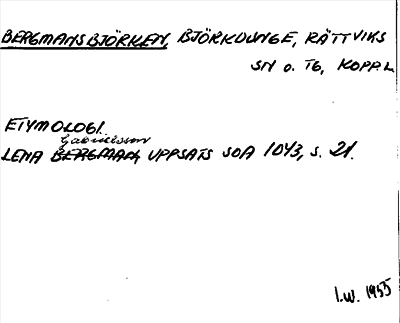 BERGMANSBJÖRKEN, BJÖRKLUNGE, RÄTTVIKS
SN O. TG, KOPP.L.
ETYMOLOGI.
Gabrielsson
LENA BERGMAN, UPPSATS SOA 1043, S. 21.
I.W. 1955